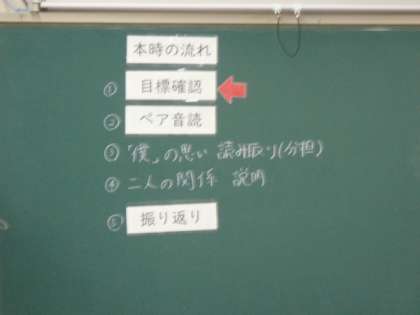 本時の流れ
① 目標確認
② ペア音読
③ 「僕」の思い 読み取り(分担)
④ 二人の関係 説明
⑤ 振り返り